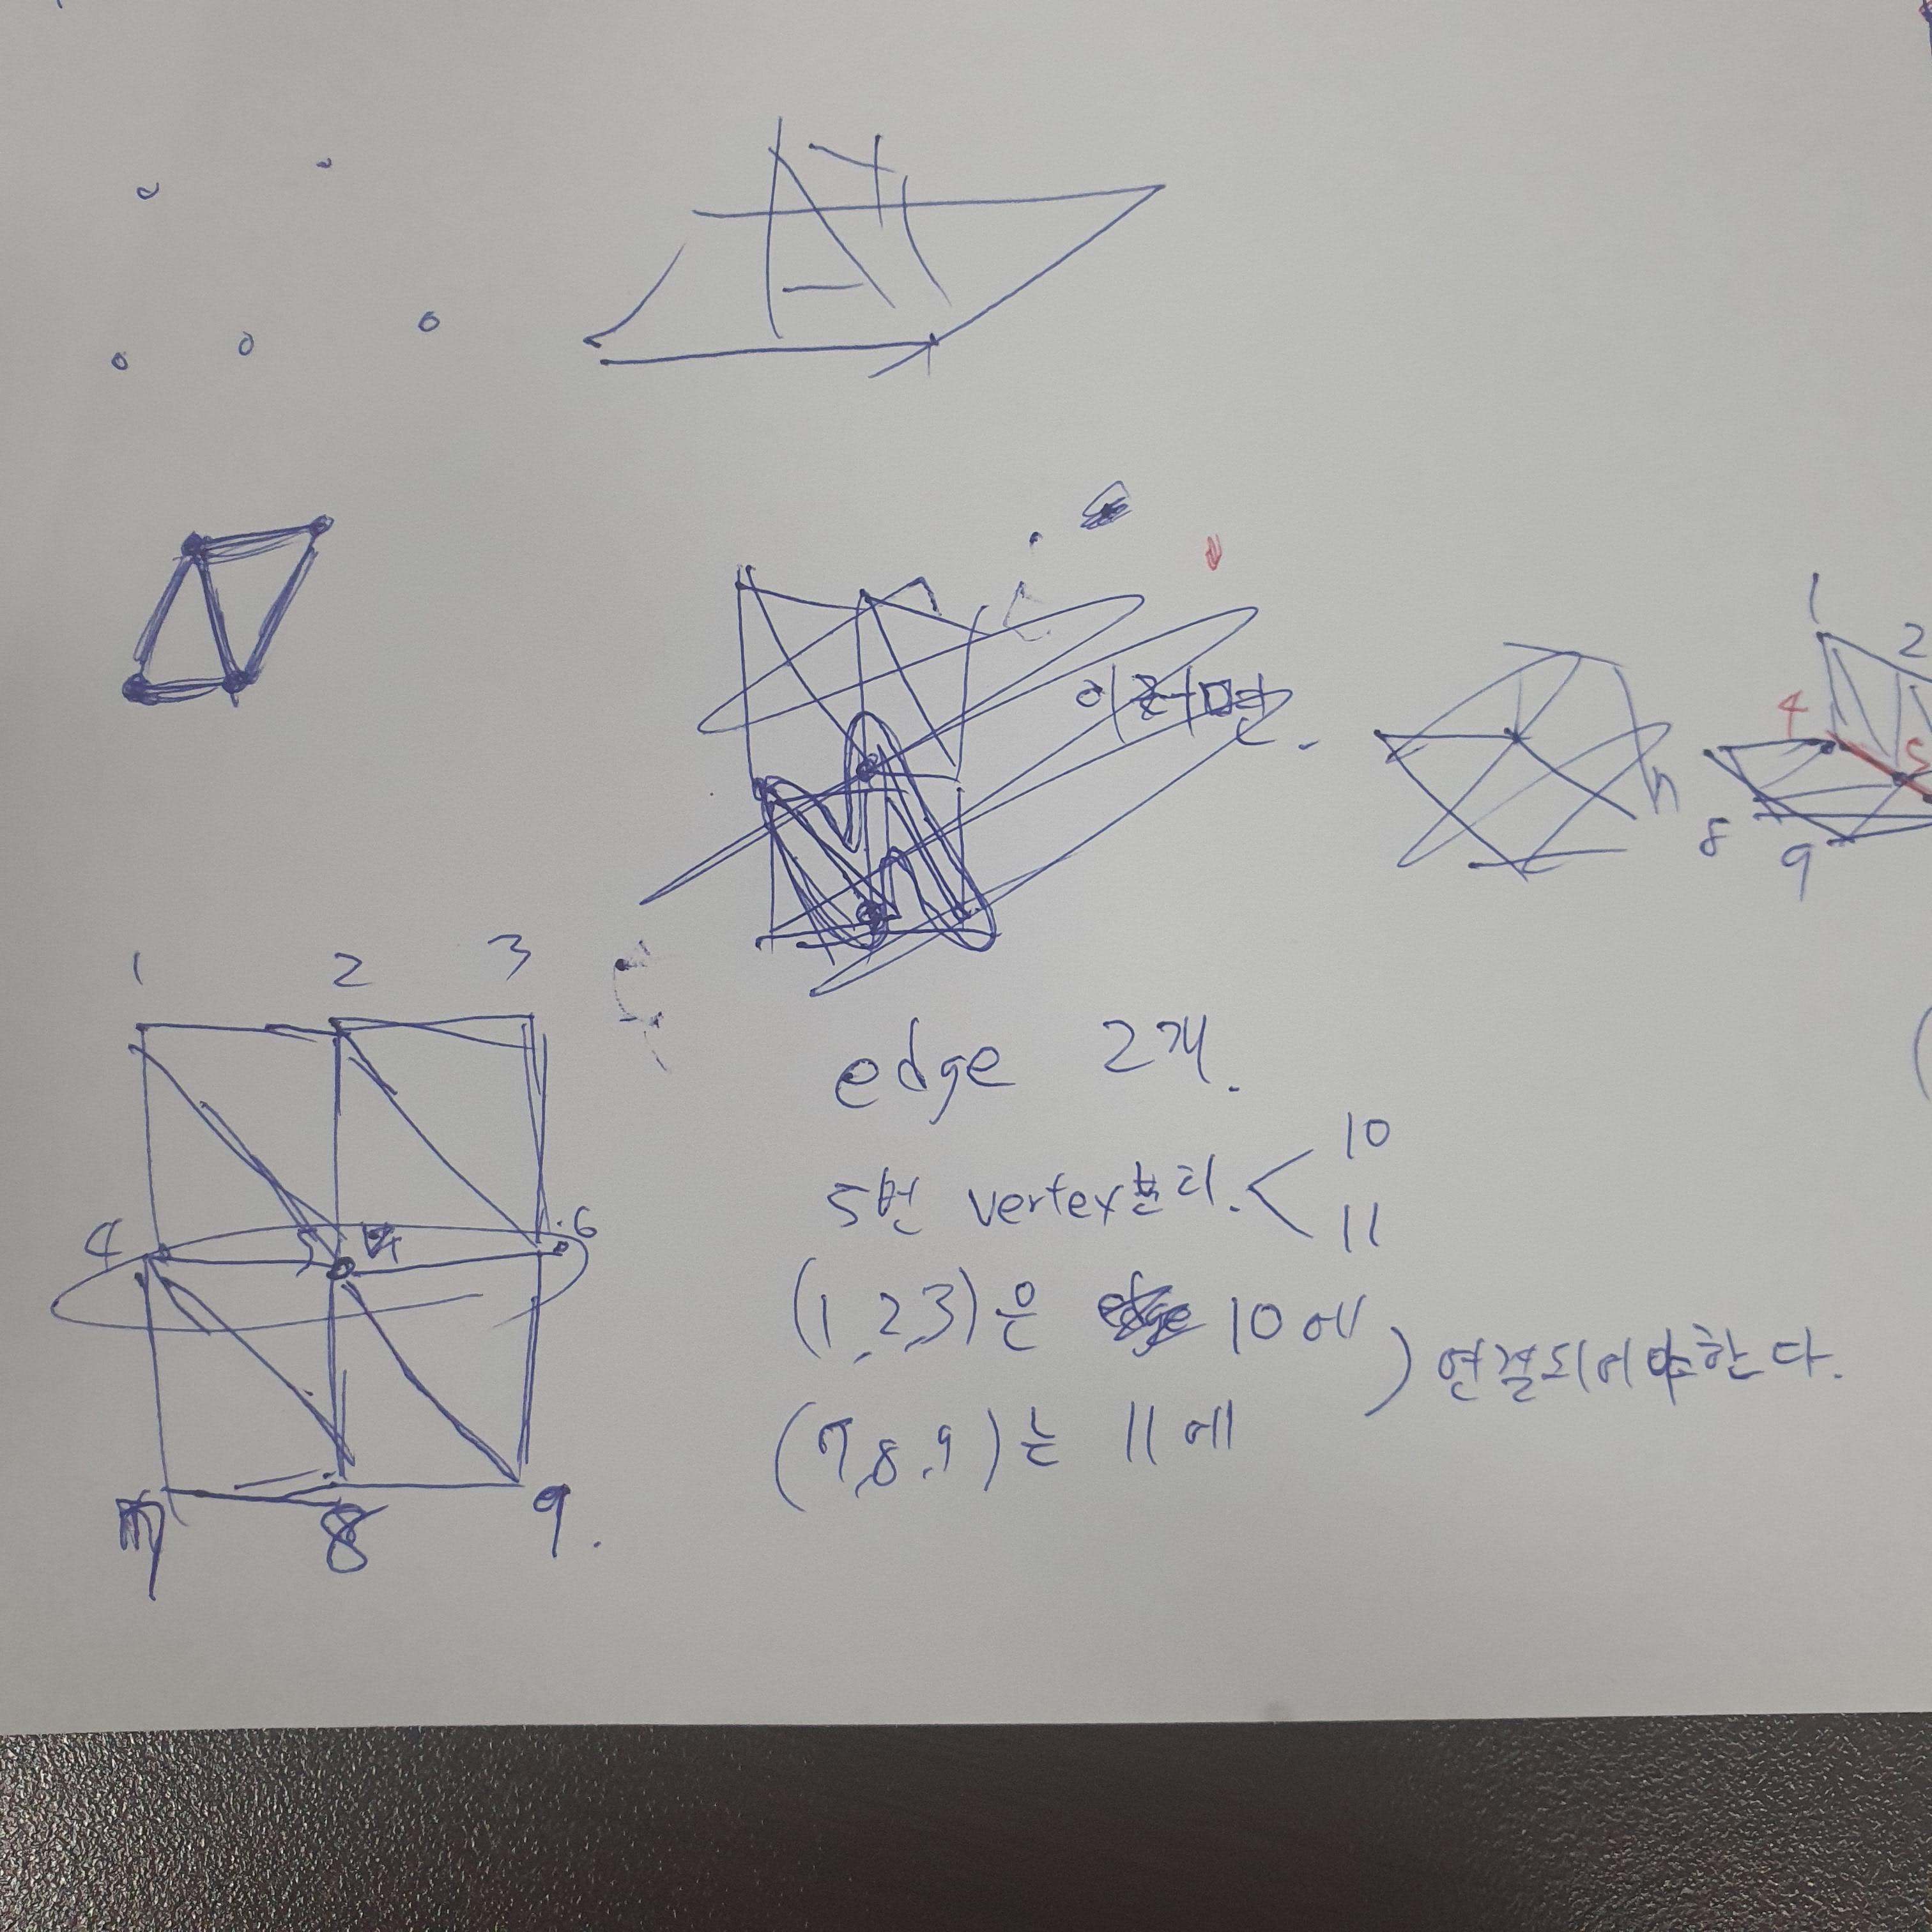 이러면.
1 2
4
5
8
9
1 2 3
4 5 6
7 8 9.
edge 2개.
5번 vertex분리. < 10
11
(1,2,3)은 10에
(7,8,9)는 11에
) 연결되어야한다.